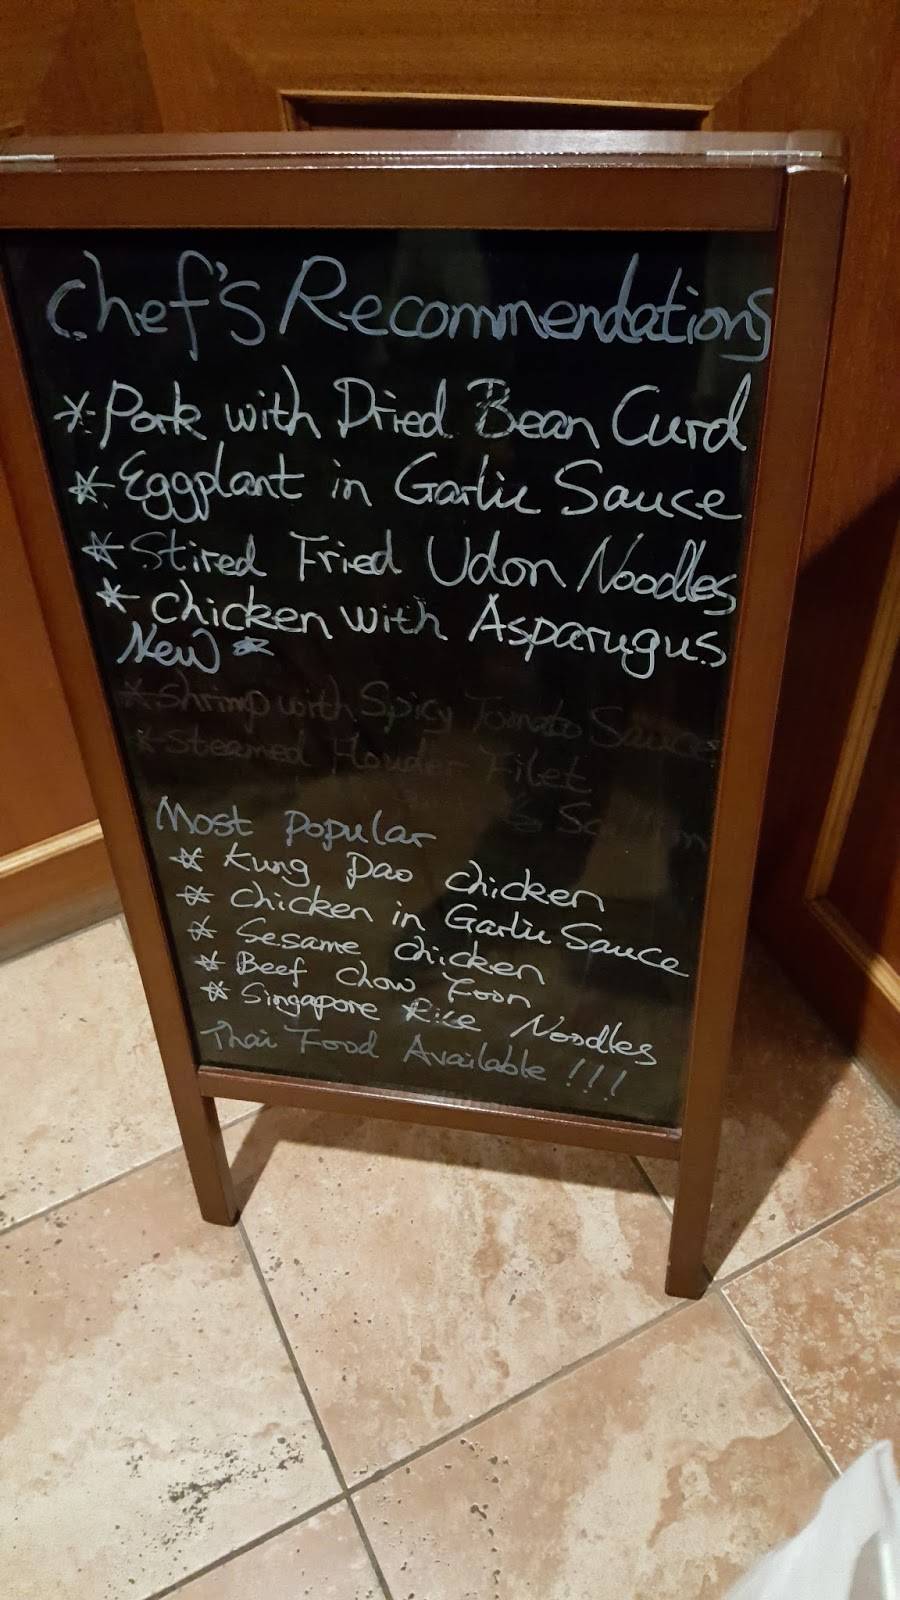 Chef's Recommendations
* Pork with Dried Bean Curd
* Eggplant in Garlic Sauce
* Stired Fried Udon Noodles
* Chicken with Asparugus
New *
* Shrimp with Spicy Tomato Sauce
* Steamed Flouder Filet
Most Popular
* Kung Pao Chicken
* Chicken in Garlic Sauce
* Sesame Chicken
* Beef Chow Foon
* Singapore Rice Noodles
Thai Food Available !!!